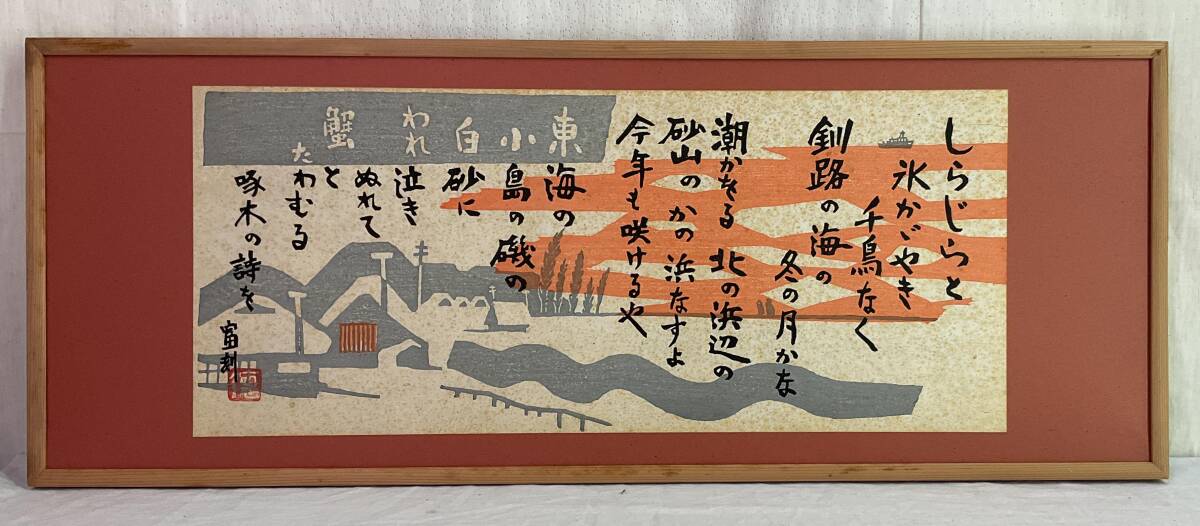 しらじらと
氷かゞやき
千鳥なく
釧路の海の
冬の月かな
潮かをる 北の浜辺の
砂山の かの浜なすよ
今年も咲けるや
東海の
小島の磯の
白砂に
われ泣き
ぬれて
蟹と
たわむる
啄木の詩を
富刻